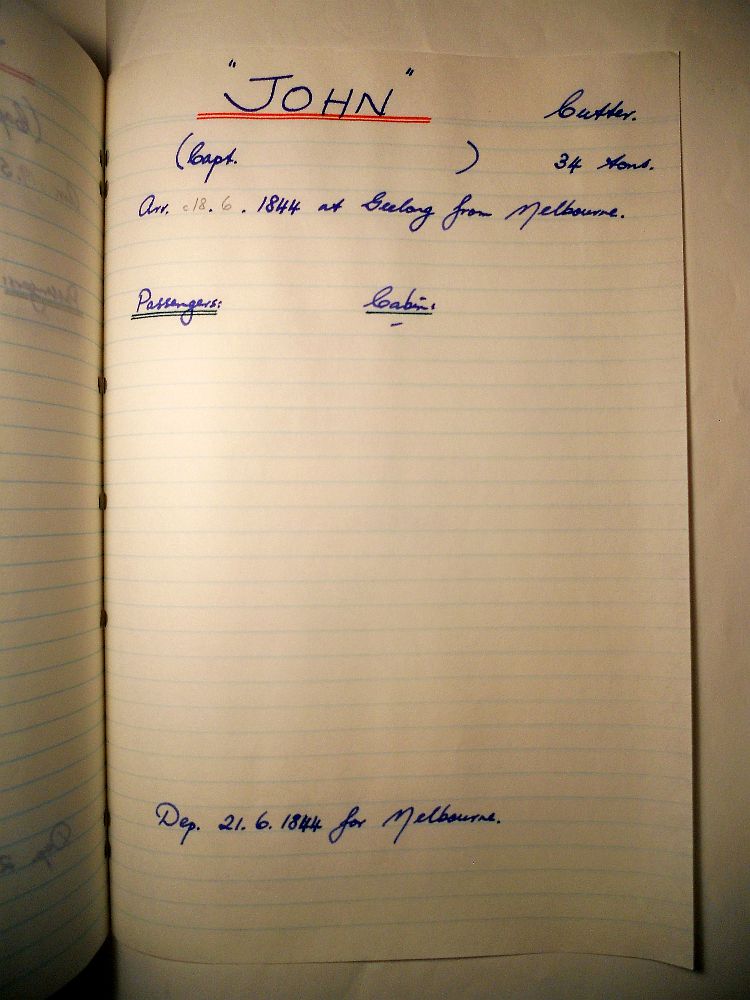 "JOHN" Cutter.
(Capt. ) 34 tons.
Arr. c18.6.1844 at Geelong from Melbourne.
Passengers: Cabin:
Dep. 21.6.1844 for Melbourne.